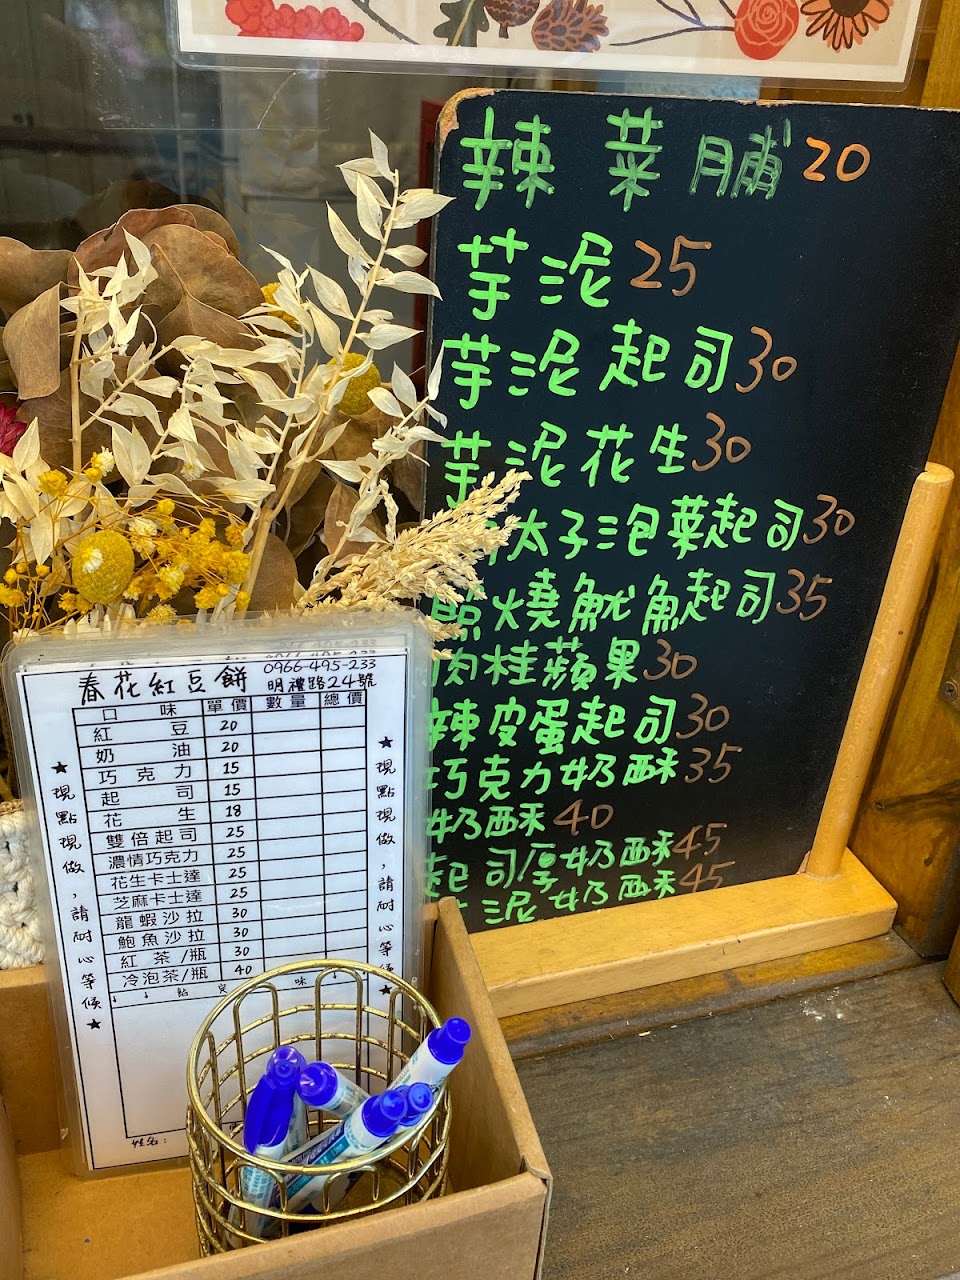 辣菜脯20
芋泥25
芋泥起司30
芋泥花生30
太子泡菜起司30
照燒魷魚起司35
肉桂蘋果30
辣皮蛋起司30
巧克力奶酥35
奶酥40
起司厚奶酥45
泥奶酥45
春花紅豆餅
0966-495-233
明禮路24號
口味 單價 數量 總價
紅豆 20
奶油 20
巧克力 15
起司 15
花生 18
雙倍起司 25
濃情巧克力 25
花生卡士達 25
芝麻卡士達 25
龍蝦沙拉 30
鮑魚沙拉 30
紅茶/瓶 30
冷泡茶/瓶 40
味
姓名:
★現點現做,請耐心等候★
★現點現做,請耐心等候★